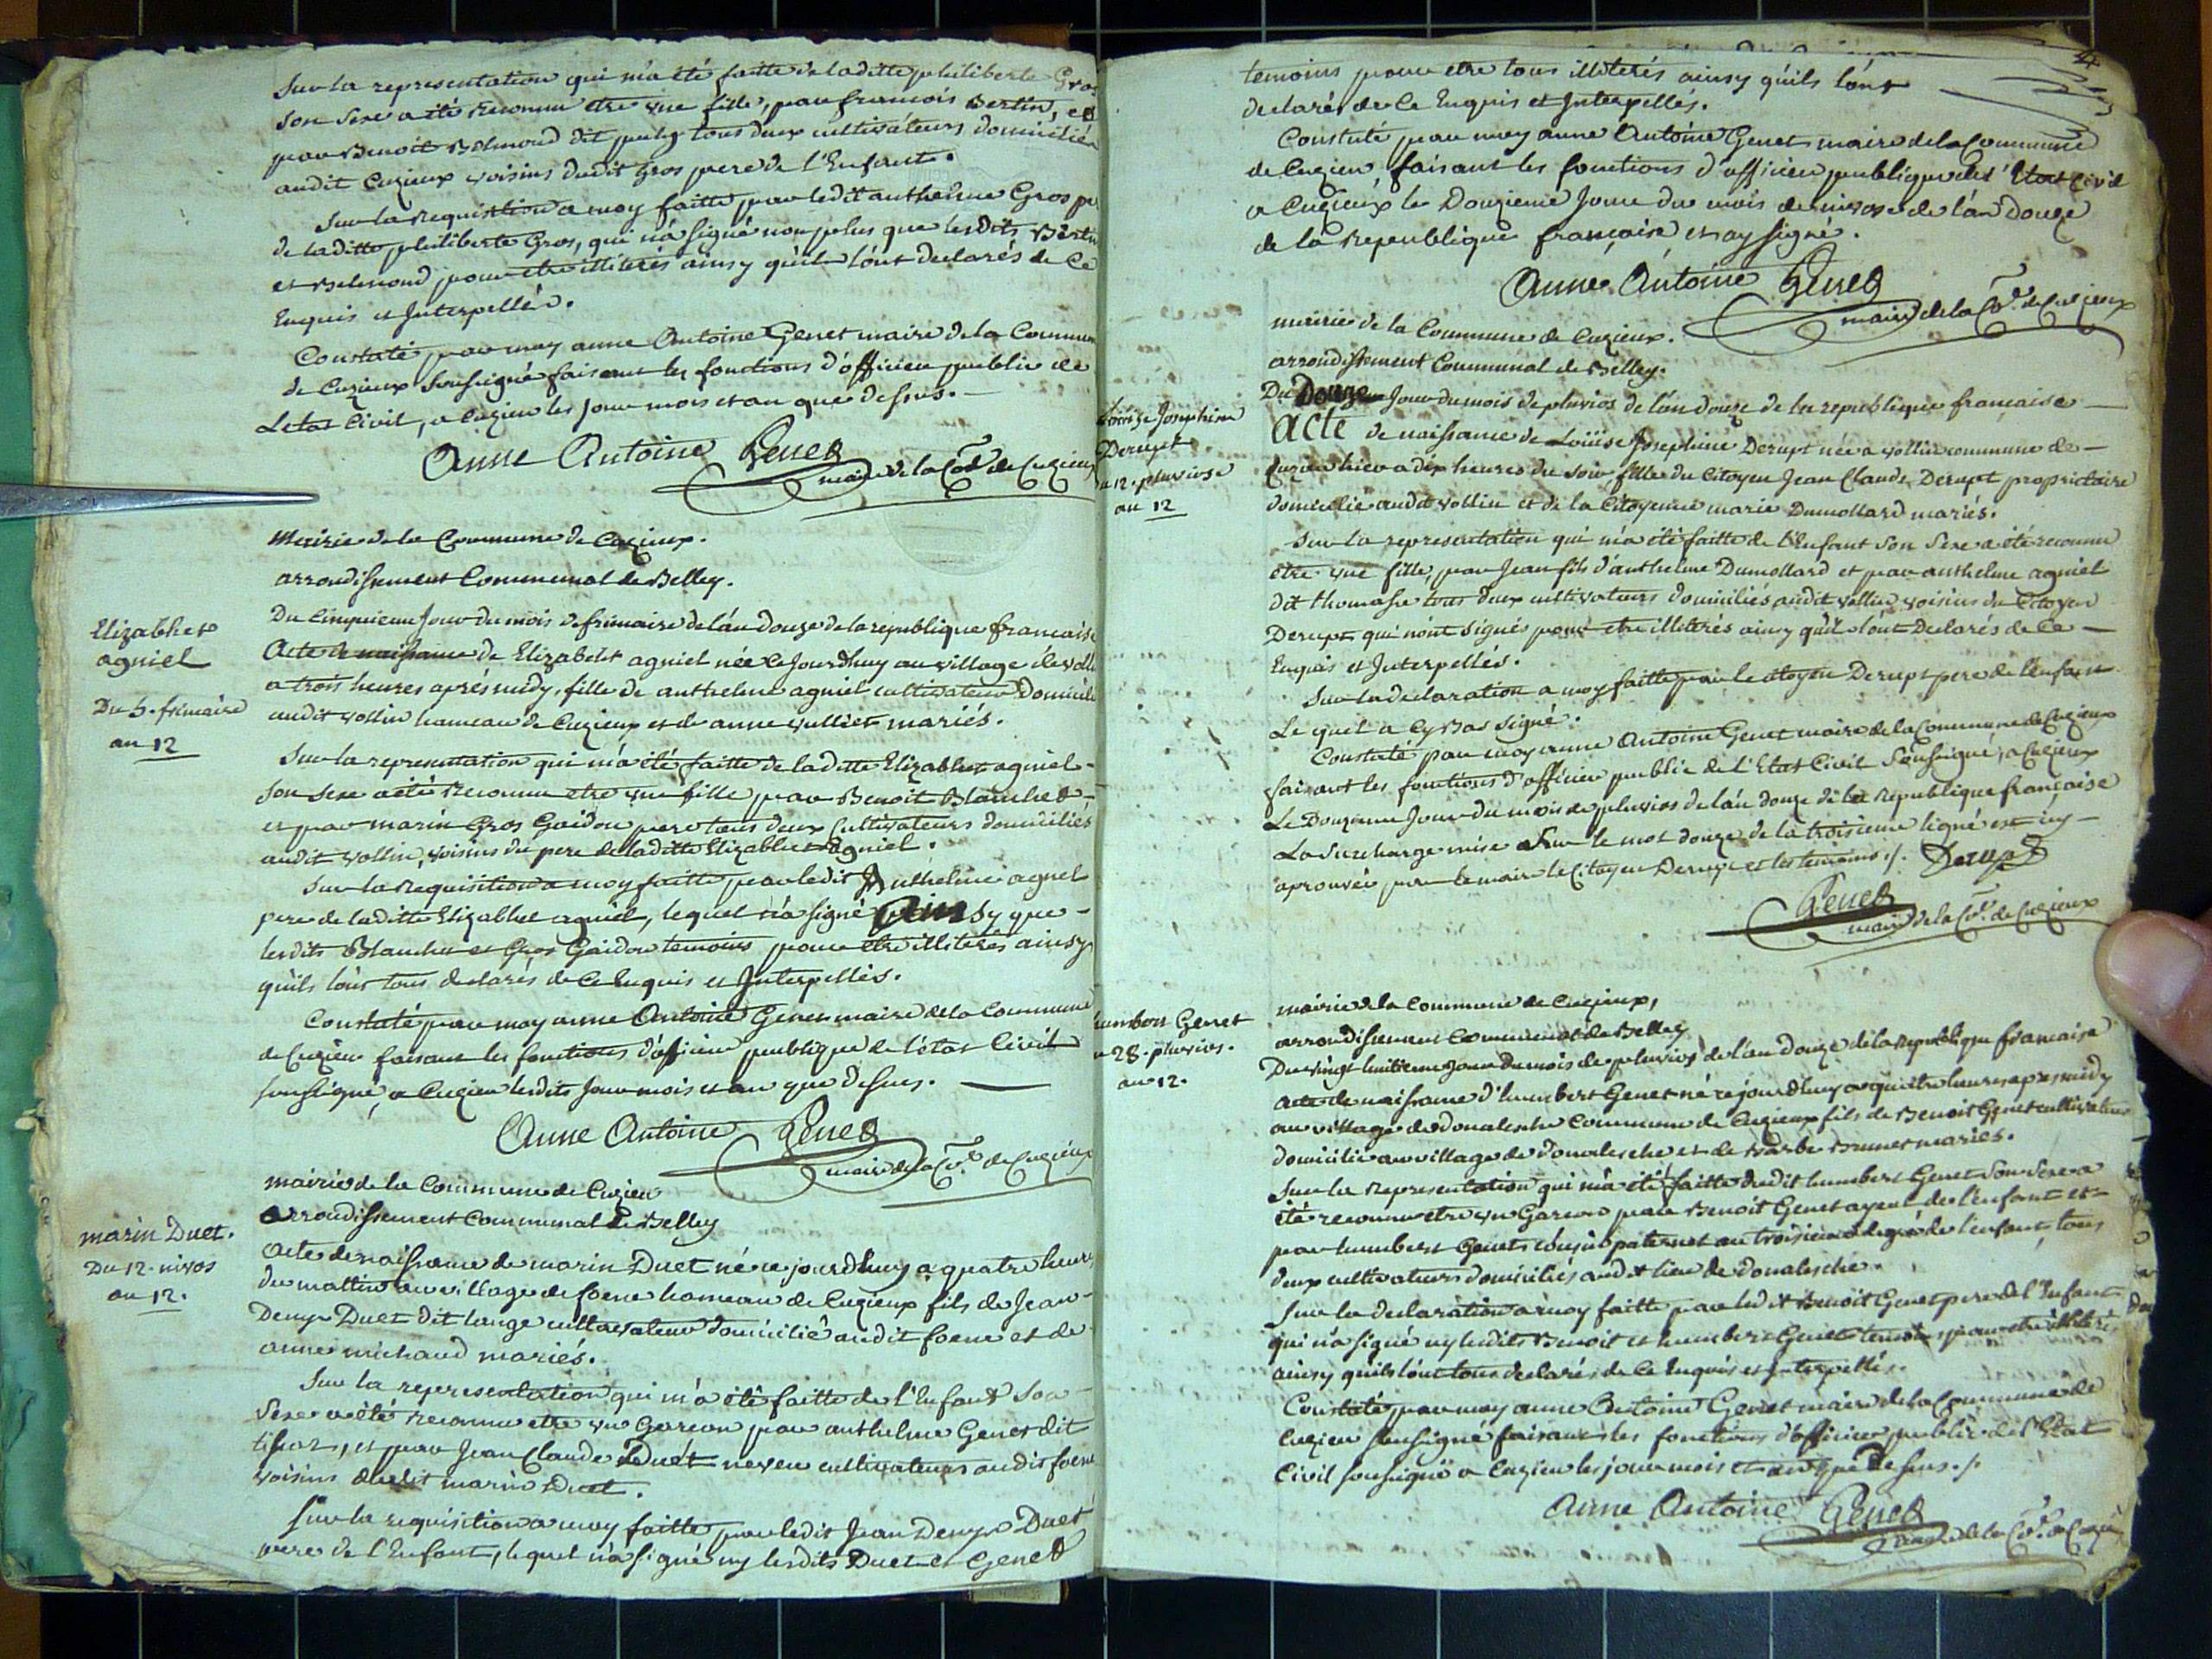 Sur la representation qui m'a été faitte de laditte philiberte Gros
son sexe a été reconnu etre une fille, par francois Bertin, et
par Benoit Belmond dit putig tous deux cultivateurs domiciliés
audit Cuzieux voisins dudit Gros pere de l'Enfant.
Sur la requisition a moy faitte par ledit anthelme Gros pe
de laditte philiberte Gros, qui n'a signé non plus que lesdits Bertin
et Belmond pour etre illiterés ainsy qu'ils l'ont declarés de Ce
Enquis et Interpellés.
Constaté par moy anne Antoine Genet maire de la Commun
de Cuzieux soussigné faisant les fonctions d'officier public de
Letat Civil, a Cuzieu les jour mois et an que dessus.
Anne Antoine Genet
maire de la Cod de Cuzieux
Mairie de la Commune de Cuzieux.
arrondissement Communal de Belley.
Elizabhet
agniel
Du 5. frimaire
an 12
Du Cinquieme Jour du mois de frimaire de l'an douze de la republique francaise
Acte de naissance de Elizabeht agniel née Ce Jourdhuy au village de volli
a trois heures aprés midy, fille de anthelme agniel cultivateur Domicilié
audit vollin hameau de Cuzieux et de anne vulliet mariés.
Sur la representation qui m'a été faitte de laditte Elizabhet agniel
son sexe a été Reconnu etre une fille par Benoit Blanchet
et par marin Gros Gaidon pere tous deux Cultivateurs domiciliés
audit vollin, voisins du pere de laditte Elizabhet agniel.
Sur la Requisition a moy faitte par ledit Anthelme agniel
pere de laditte Elizabhet agniel, lequel n'a signé Ainsy que
lesdits Blanchet et Gros Gaidon temoins pour etre illiterés ainsy
qu'ils l'ont tous declarés de Ce Enquis et Interpellés.
Constaté par moy anne Antoine Genet maire de la Commune
de Cuzieu faisant les fonctions d'officier publique de l'etat Civil
soussigné, a Cuzieu lesdits Jour mois et an que dessus.
Anne Antoine Genet
maire de la Co.e de Cuzieux
mairie de la Commune de Cuzieu
arrondissement Communal de Belley
marin Duet.
Du 12. nivos
an 12.
Acte de naissance de marin Duet né ce jourdhuy a quatre heures
du mattin au village de foene hameau de Cuzieux fils de Jean
Denys Duet dit lange cultivateur domicilié audit foene et de
anne michaud mariés.
Sur la representation qui m'a été faitte de l'Enfant son
sexe a été reconnu etre un Garcon par anthelme Genet dit
, et par Jean Claude Duet neveu cultivateurs audit foene
voisins dudit marin Duet.
Sur la requisition a moy faitte par ledit Jean Denys Duet
pere de l'Enfant, lequel n'a signé ny lesdits Duet et Genet
temoins pour etre tous illiterés ainsy qu'ils l'ont
declarés de Ce Enquis et Interpellés.
Constaté par moy anne Antoine Genet maire de la Commune
de Cuzieu faisant les fonctions d'officier publique de l'Etat Civil
a Cuzieux le Douzieme Jour du mois de nivose de l'an Douze
de la Republique française et ay signé.
Anne Antoine Genet
maire de la Co.e de Cuzieux
mairie de la Commune de Cuzieux.
arrondissement Communal de Belley.
Louise Josephine
Derupt
u 12. pluviose
an 12
Du Douze Jour du mois de pluvios de l'an douze de la republique francaise
Acte de naissance de Louïse Josephine Derupt née a vollin commune de
Cuzieu hier a dix heures du soir, fille du Citoyen Jean Claude Derupt proprietaire
domicilié audit vollin et de la Citoyenne marie Dumollard mariés.
Sur la representation qui m'a été faitte de l'Enfant son sexe a été reconnu
etre une fille, par Jean fils d'anthelme Dumollard et par anthelme agniel
dit thomasse tous deux cultivateurs domiciliés audit vollin, voisins du Citoyen
Derupt qui n'ont signés pour etre illiterés ainsy qu'il l'ont Declarés de Ce
Enquis et Interpellés.
Sur la declaration a moy faitte par le citoyen Derupt pere de l'enfant
Le quel a Cy Bas signé.
Constaté par moy anne Antoine Genet maire de la Commune de Cuzieux
faisant les fonctions d'officier public de l'Etat Civil soussigné, a Cuzieux
Le Douzieme Jour du mois de pluvios de l'an douze de la republique française
La surcharge mise sur le mot douze de la troisieme ligne est icy
aprouvée par le maire le Citoyen Derupt et les temoins ./. Derupt
Genet
maire de la Co.e de Cuzieux
mairie de la Commune de Cuzieux,
arrondissement Communal de Belley
umbert Genet
u 28. pluvios.
an 12.
Du vingt huitieme Jour du mois de pluvios de l'an douze de la Republique francaise
acte de naissance d'humbert Genet né ce jourdhuy a quatre heures apres midy
au village de donalesche Commune de Cuzieux fils de Benoit Genet cultivateur
domicilié au village de donalesche et de Barbe Brunet mariés.
Sur la Representation qui m'a été faitte dudit humbert Genet son sexe a
été reconnu etre un Garcon par Benoit Genet ayeul de l'enfant et
par humbert Genet cousin paternel au troisieme degré de l'enfant, tous
deux cultivateurs domiciliés audit lieu de donalesche.
Sur la declaration a moy faitte par ledit Benoit Genet pere de l'Enfant
qui n'a signé ny lesdits Benoit et humbert Genet temoins pour etre illiterés
ainsy qu'ils l'ont tous declarés de Ce Enquis et Interpellés.
Constaté par moy anne Antoine Genet maire de la Commune de
Cuzieu soussigné faisant les fonctions d'officier public de l'Etat
Civil soussigné a Cuzieu les jour mois et an que dessus ./.
Anne Antoine Genet
maire de la Co.e de Cuzieu